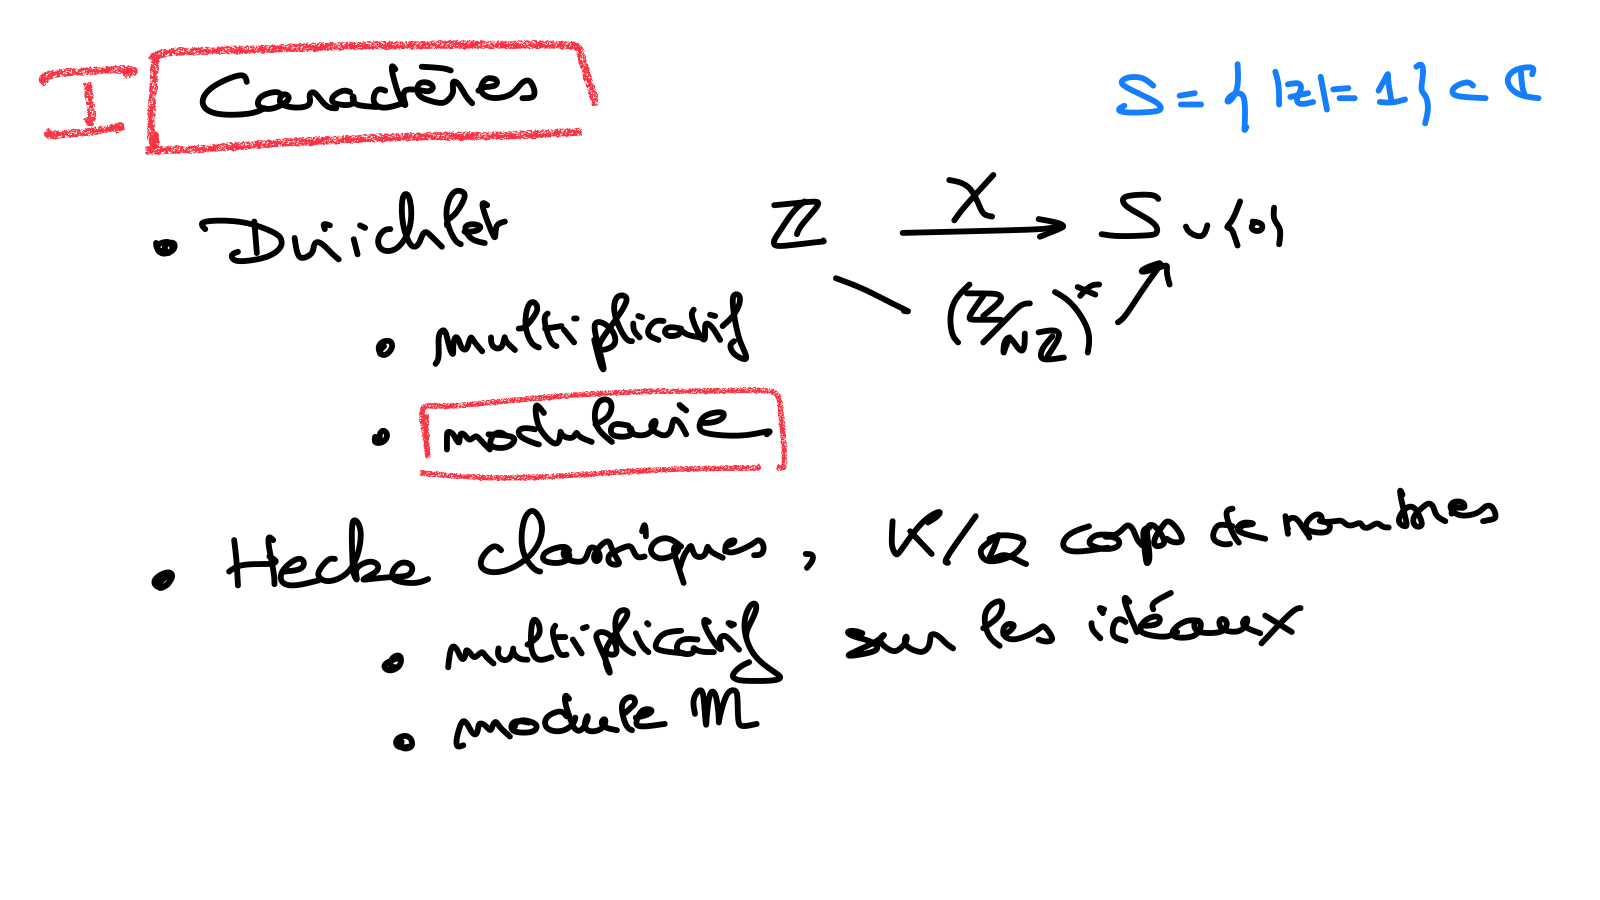 I Caractères
S = { |z| = 1 } ⊂ ℂ
• Dirichlet ℤ χ → S ∪ {0}
(ℤ/Nℤ)^×
• multiplicatif
• modulaire
• Hecke classiques, K/ℚ corps de nombres
• multiplicatif sur les idéaux
• module m